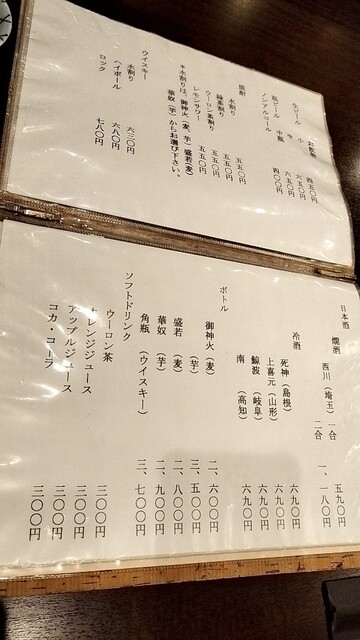 お飲物
生ビール 小 四五〇円
中 六五〇円
瓶ビール 中瓶 六五〇円
ノンアルコール 四〇〇円
焼酎
水割り 五五〇円
緑茶割り 五五〇円
ウーロン茶割り 五五〇円
レモンサワー 五五〇円
＊水割りは、御神火（麦、芋）盛若（麦）
華奴（芋）からお選び下さい。
ウイスキー
水割り 六三〇円
ハイボール 六八〇円
ロック 七八〇円
日本酒
燗酒
西川（埼玉）一合 五九〇円
二合 一、一八〇円
冷酒
死神（島根） 六九〇円
上喜元（山形） 六九〇円
鯨波（岐阜） 六九〇円
南（高知） 六九〇円
ボトル
御神火（麦） 二、六〇〇円
（芋） 三、五〇〇円
盛若（麦） 二、八〇〇円
華奴（芋） 二、九〇〇円
角瓶（ウイスキー） 三、七〇〇円
ソフトドリンク
ウーロン茶 三〇〇円
オレンジジュース 三〇〇円
アップルジュース 三〇〇円
コカ・コーラ 三〇〇円